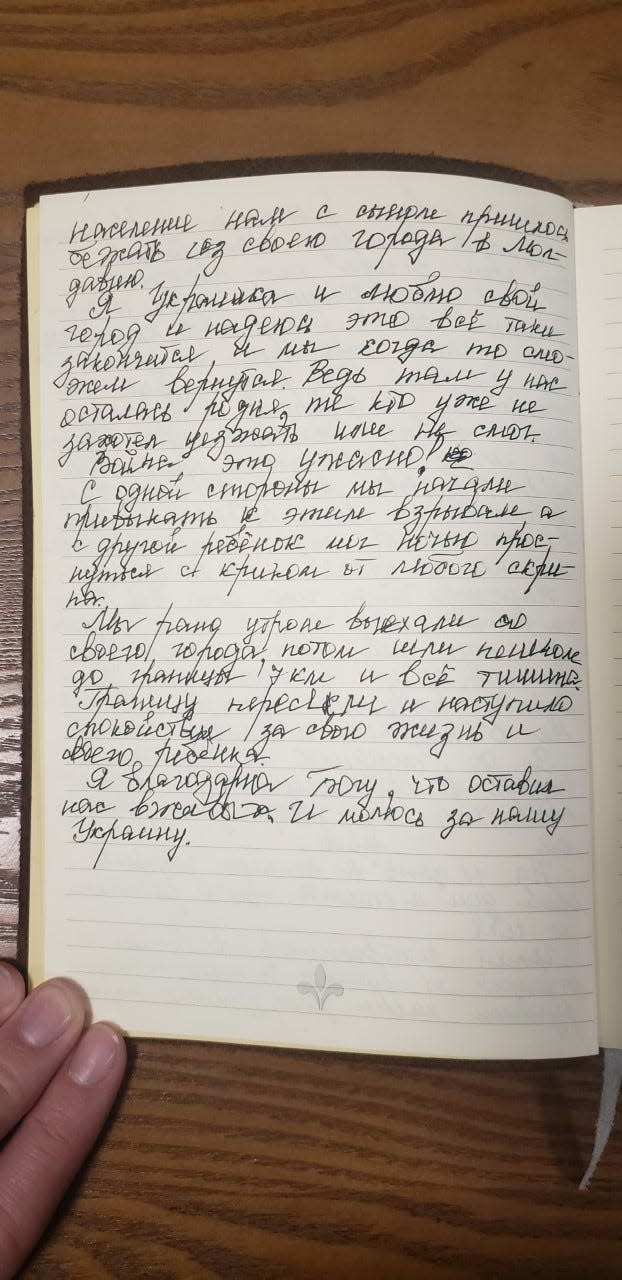 население нам с сыном пришлось
бежать из своего города в Мол-
давию.
Я Украинка и люблю свой
город и надеюсь это всё таки
закончится и мы когда то смо-
жем вернутся. Ведь там у нас
осталась родня, те кто уже не
захотел уезжать или не смог.
Война это ужасно!
С одной стороны мы начали
привыкать к этим взрывам а
с другой ребёнок мог ночью прос-
нуться с криком от любого скри-
па.
Мы рано утром выехали со
своего города, потом шли пешком
до границы 7 км и всё тишина.
Границу пересекли и наступило
спокойствия за свою жизнь и
своего ребёнка.
Я благодарна Богу, что оставил
нас в живых. И молюсь за нашу
Украину.